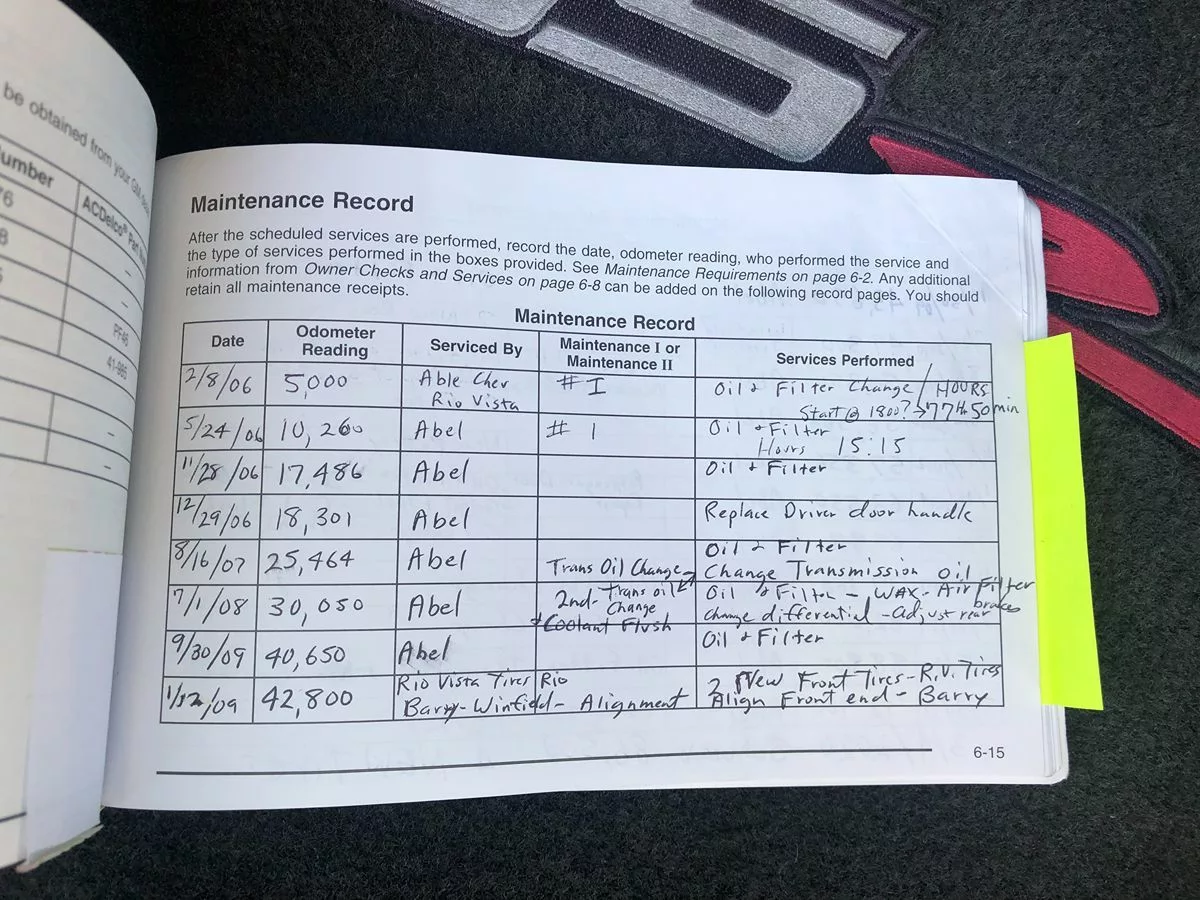 be obtained from your GM
umber
ACDelco® Part
76
8
PF46
41-985
Maintenance Record
After the scheduled services are performed, record the date, odometer reading, who performed the service and
the type of services performed in the boxes provided. See Maintenance Requirements on page 6-2. Any additional
information from Owner Checks and Services on page 6-8 can be added on the following record pages. You should
retain all maintenance receipts.
Maintenance Record
Date Odometer Reading Serviced By Maintenance I or Maintenance II Services Performed
2/8/06 5,000 Able Chev # I Oil & Filter Change / HOURS
Rio Vista Start @ 1800? → 77 Hr 50 min
5/24/06 10,260 Abel # 1 Oil & Filter
Hours 15:15
11/28/06 17,486 Abel Oil & Filter
12/29/06 18,301 Abel Replace Driver door handle
8/16/07 25,464 Abel Oil & Filter
Trans Oil Change → Change Transmission oil
7/1/08 30,050 Abel 2nd - Trans oil Change Oil & Filter - WAX - Air Filter
& Coolant Flush change differential - adjust rear brakes
9/30/09 40,650 Abel Oil & Filter
09 42,800 Rio Vista Tires Rio 2 New Front Tires - R.V. Tires
Barry - Winfield - Alignment Align Front end - Barry
6-15